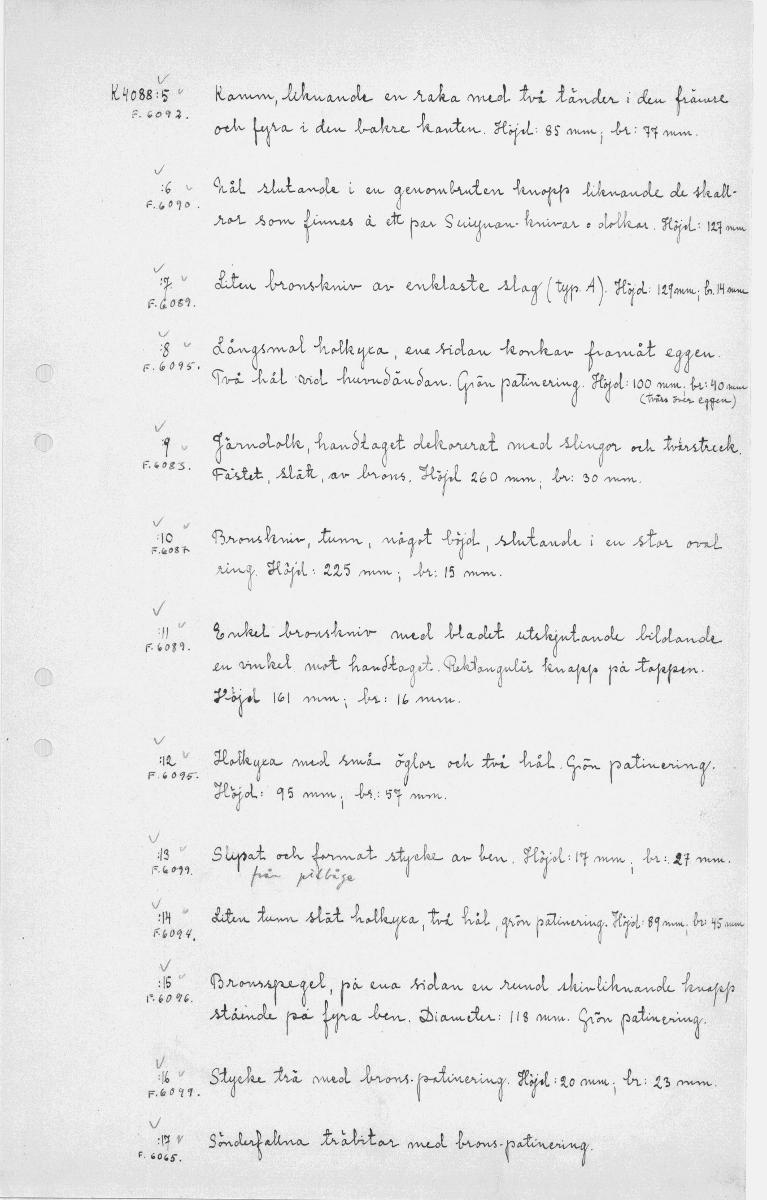 K4088:5 Kamm, liknande en raka med två tänder i den främre
F.6092. och fyra i den bakre kanten. Höjd: 85 mm; br: 77 mm.
:6 Nål slutande i en genombruten knopp liknande de skall-
F.6090. ror som finnes å ett par Suiyuan-knivar o dolkar. Höjd: 127 mm
:7 Liten bronskniv av enklaste slag (typ. A). Höjd: 129 mm; br. 14 mm
F.6089.
:8 Långsmal holkyxa, ena sidan konkav framåt eggen.
F.6095. Två hål vid huvudändan. Grön patinering. Höjd: 100 mm; br: 40 mm
(tvärs över eggen)
9 Järndolk, handtaget dekorerat med slingor och tvärstreck.
F.6083. Fästet, slätt, av brons. Höjd 260 mm; br: 30 mm.
:10 Bronskniv, tunn, något böjd, slutande i en stor oval
F.6087 ring. Höjd: 225 mm; br: 15 mm.
:11 Enkel bronskniv med bladet utskjutande bildande
F.6089. en vinkel mot handtaget. Rektangulär knapp på toppen.
Höjd 161 mm; br: 16 mm.
:12 Holkyxa med små öglor och två hål. Grön patinering.
F.6095. Höjd: 95 mm; br.: 57 mm.
:13 Slipat och format stycke av ben. Höjd: 17 mm; br: 27 mm.
F.6099. från pilbåge
:14 Liten tunn slät holkyxa, två hål, grön patinering. Höjd: 89 mm; br: 45 mm
F.6094.
:15 Bronsspegel, på ena sidan en rund skivliknande knapp
F.6096. stående på fyra ben. Diameter: 118 mm. Grön patinering.
:16 Stycke trä med brons-patinering. Höjd: 20 mm; br: 23 mm.
F.6099.
:17 Sönderfallna träbitar med brons-patinering.
F.6065.